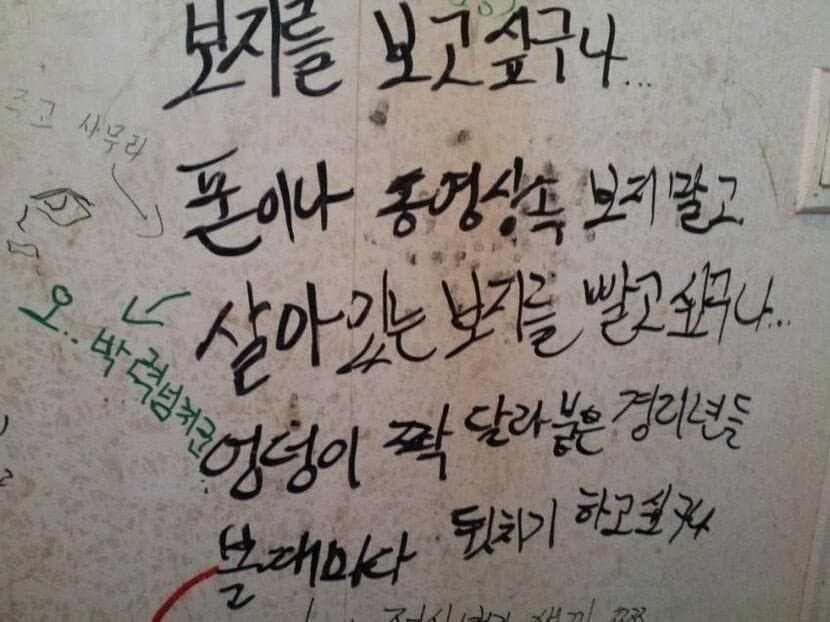 보지를 보고 싶구나...
폰이나 동영상속 보지말고
살아있는 보지를 빨고싶구나...
엉덩이 짝 달라붙은 경리년들
볼때마다 뒷치기 하고싶구나
오.. 박력넘치군..